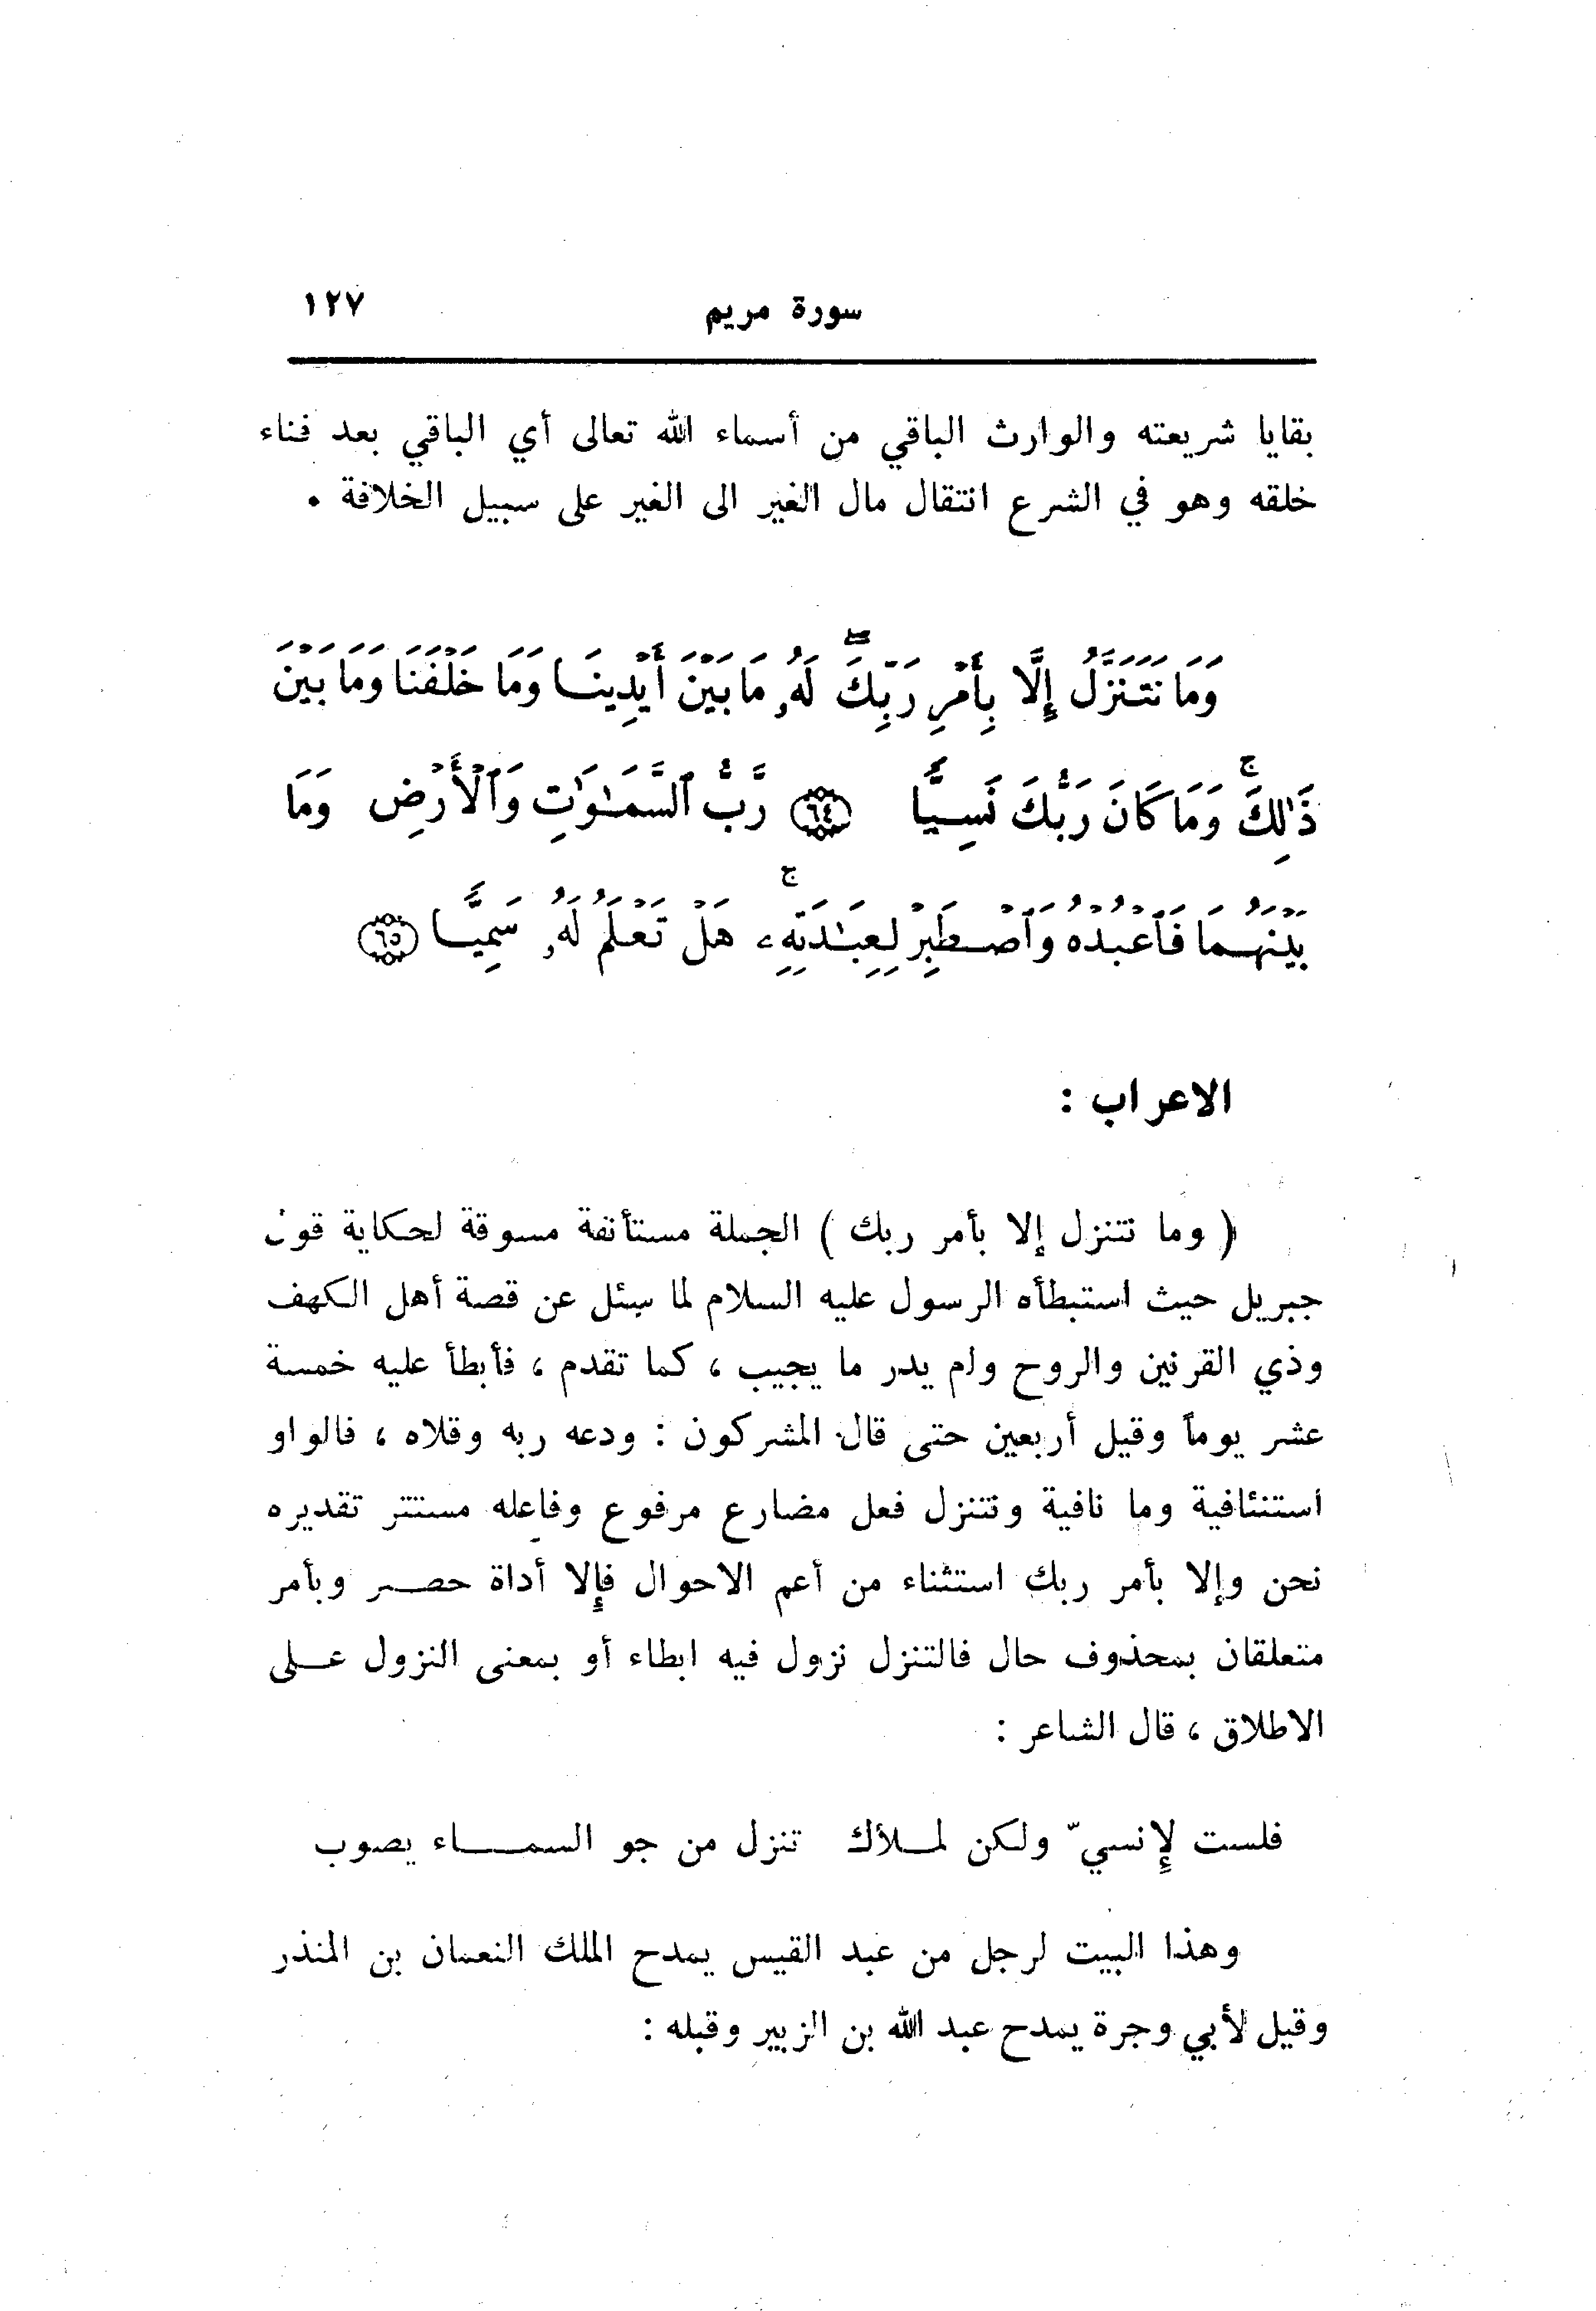 سورة مريم ١٢٧
بقايا شريعته والوارث الباقي من أسماء الله تعالى أي الباقي بعد فناء
خلقه وهو في الشرع انتقال مال الغير الى الغير على سبيل الخلافة .
وَمَا نَتَنَزَّلُ إِلَّا بِأَمْرِ رَبِّكَ ۖ لَهُۥ مَا بَيْنَ أَيْدِينَا وَمَا خَلْفَنَا وَمَا بَيْنَ
ذَٰلِكَ ۚ وَمَا كَانَ رَبُّكَ نَسِيًّا ﴿٦٤﴾ رَّبُّ ٱلسَّمَـٰوَٰتِ وَٱلْأَرْضِ وَمَا
بَيْنَهُمَا فَٱعْبُدْهُ وَٱصْطَبِرْ لِعِبَـٰدَتِهِۦ ۚ هَلْ تَعْلَمُ لَهُۥ سَمِيًّا ﴿٦٥﴾
الاعراب :
( وما نتنزل إلا بأمر ربك ) الجملة مستأنفة مسوقة لحكاية قول
جبريل حيث استبطأه الرسول عليه السلام لما سئل عن قصة أهل الكهف
وذي القرنين والروح ولم يدر ما يجيب ، كما تقدم ، فأبطأ عليه خمسة
عشر يوماً وقيل أربعين حتى قال المشركون : ودعه ربه وقلاه ، فالواو
استنئافية وما نافية ونتنزل فعل مضارع مرفوع وفاعله مستتر تقديره
نحن وإلا بأمر ربك استثناء من أعم الاحوال فإلا أداة حصر وبأمر
متعلقان بمحذوف حال فالتنزل نزول فيه ابطاء أو بمعنى النزول على
الاطلاق ، قال الشاعر :
فلست لإنسيّ ولكن لملأك تنزل من جو السماء يصوب
وهذا البيت لرجل من عبد القيس يمدح الملك النعمان بن المنذر
وقيل لأبي وجرة يمدح عبد الله بن الزبير وقبله :